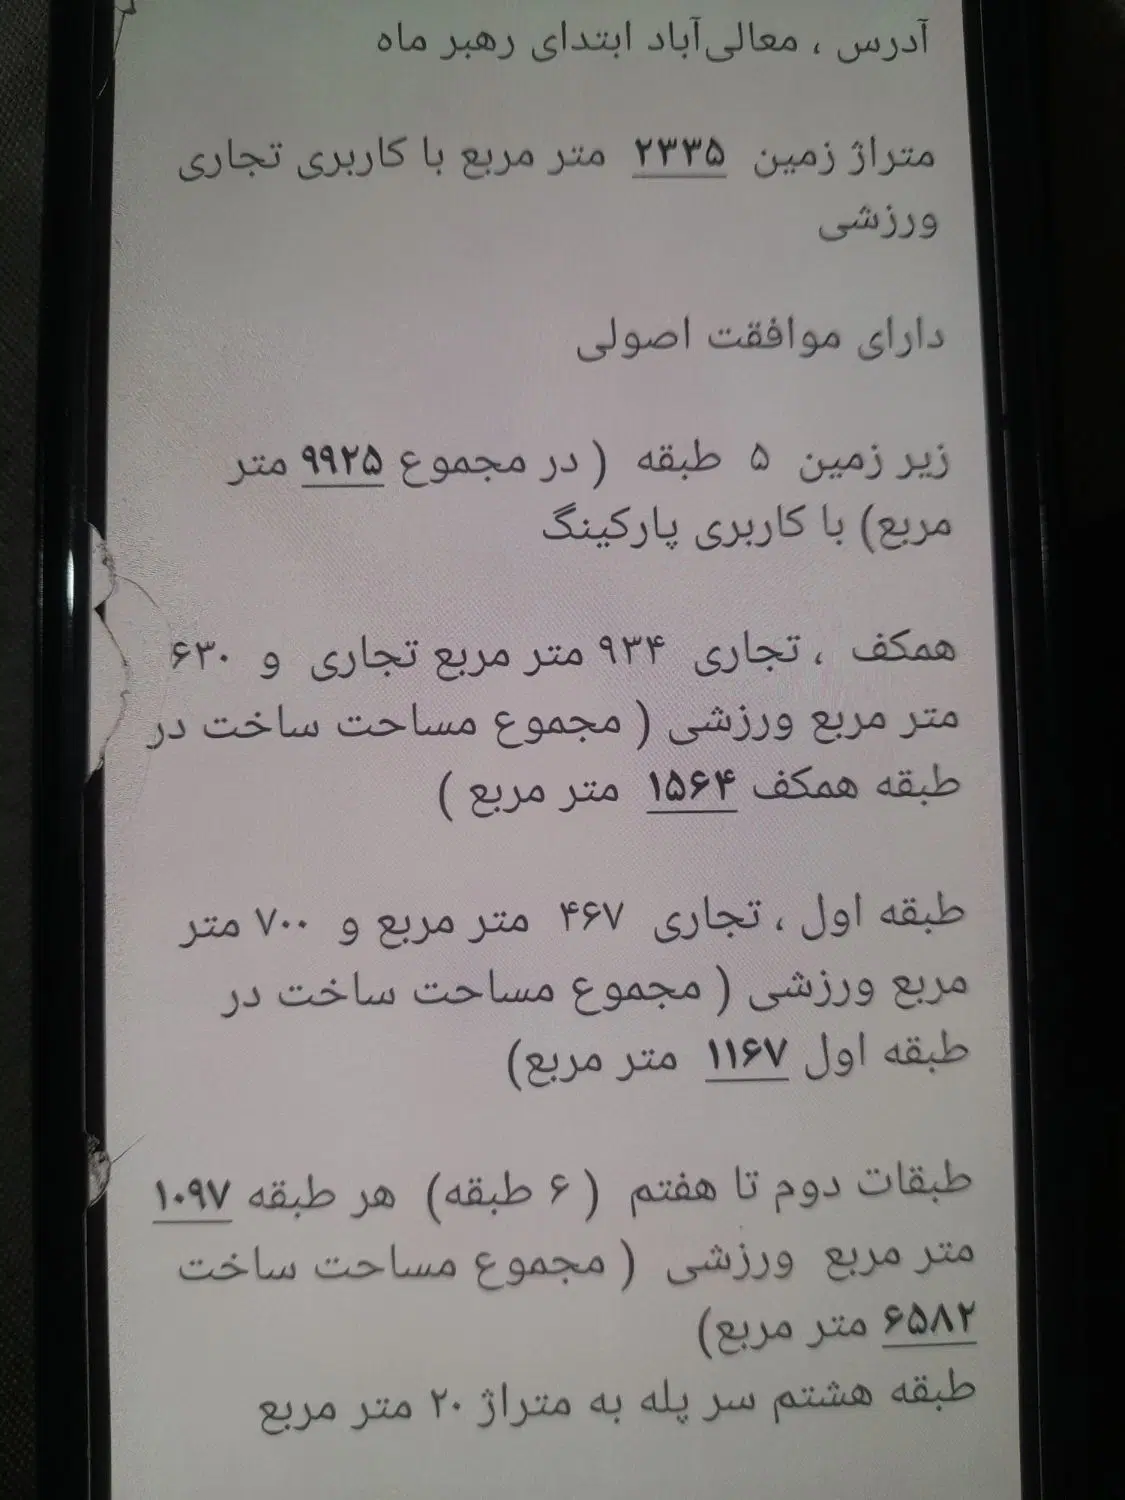 آدرس ، معالی‌آباد ابتدای رهبر ماه
متراژ زمین ۲۳۳۵ متر مربع با کاربری تجاری
ورزشی
دارای موافقت اصولی
زیر زمین ۵ طبقه ( در مجموع ۹۹۲۵ متر
مربع) با کاربری پارکینگ
همکف ، تجاری ۹۳۴ متر مربع تجاری و ۶۳۰
متر مربع ورزشی ( مجموع مساحت ساخت در
طبقه همکف ۱۵۶۴ متر مربع )
طبقه اول ، تجاری ۴۶۷ متر مربع و ۷۰۰ متر
مربع ورزشی ( مجموع مساحت ساخت در
طبقه اول ۱۱۶۷ متر مربع)
طبقات دوم تا هفتم ( ۶ طبقه) هر طبقه ۱۰۹۷
متر مربع ورزشی ( مجموع مساحت ساخت
۶۵۸۲ متر مربع)
طبقه هشتم سر پله به متراژ ۲۰ متر مربع